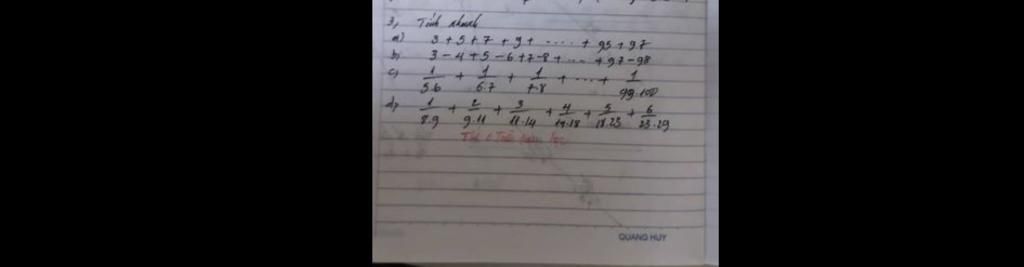 3, Tính nhanh
a) 3 + 5 + 7 + 9 + ..... + 95 + 97
b) 3 - 4 + 5 - 6 + 7 - 8 + ... + 97 - 98
c) 1/5.6 + 1/6.7 + 1/7.8 + ... + 1/99.100
d) 1/8.9 + 2/9.11 + 3/11.14 + 4/14.18 + 5/18.23 + 6/23.29
QUANG HUY